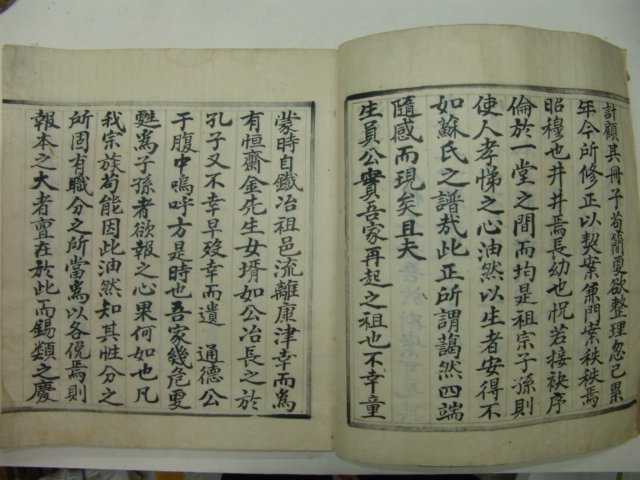 計顧其冊子苟簡更欲整理忽已累
年今所修正以契案兼門案秩秩焉
昭穆也井井焉長幼也怳若接袂序
倫於一堂之間而均是祖宗子孫則
使人孝悌之心油然以生者安得不
如蘇氏之譜哉此正所謂藹然四端
隨感而現矣且夫
生員公實吾家再起之祖也不幸童
蒙時自鐵冶祖邑流離康津幸而爲
有恒齋金先生女壻如公冶長之於
孔子又不幸早歿幸而遺 通德公
于腹中嗚呼方是時也吾家幾危更
甦爲子孫者欲報之心果何如也凡
我宗族苟能因此油然知其性分之
所固有職分之所當爲以各俛焉則
報本之大者亶在於此而錫類之慶